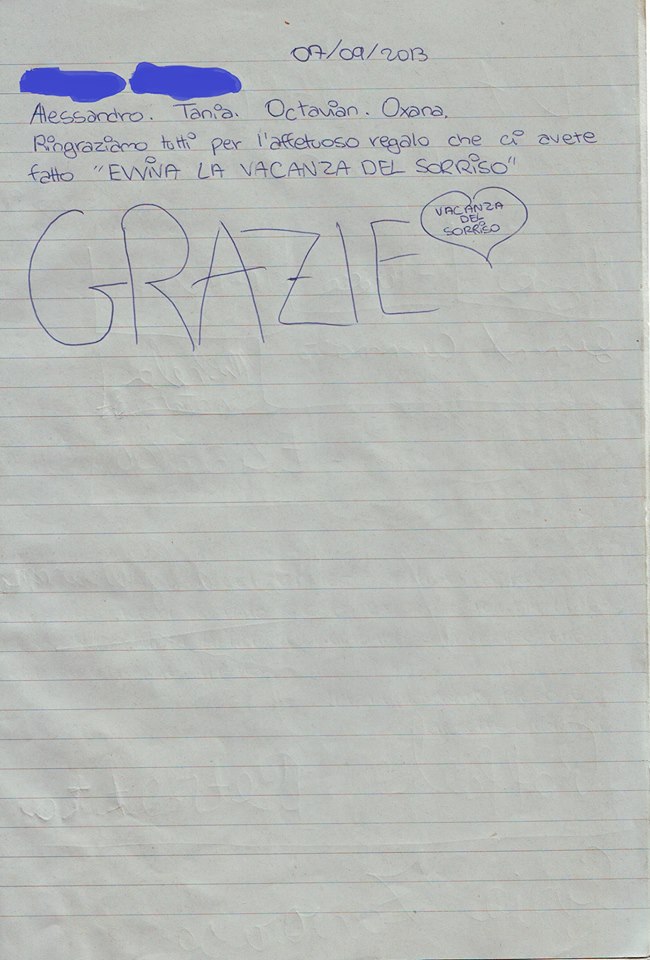 07/09/2013
Alessandro. Tania. Octavian. Oxana.
Ringraziamo tutti per l'affetuoso regalo che ci avete
fatto "EVVIVA LA VACANZA DEL SORRISO"
GRAZIE
VACANZA
DEL
SORRISO